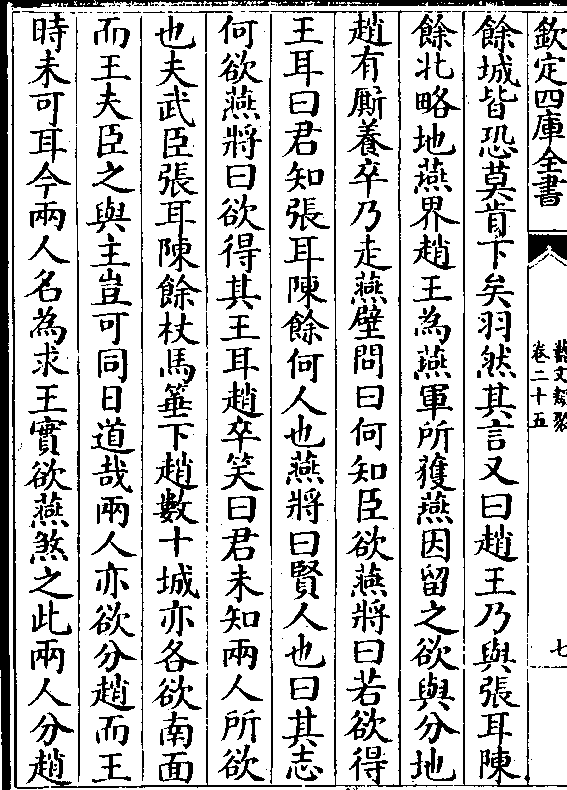 欽定四庫全書
藝文類聚
卷二十五
七
餘城皆恐莫肯下矣羽然其言又曰趙王乃與張耳陳
餘北略地燕界趙王為燕軍所獲燕因留之欲與分地
趙有厮養卒乃走燕壁問曰何知臣欲燕將曰若欲得
王耳曰君知張耳陳餘何人也燕將曰賢人也曰其志
何欲燕將曰欲得其王耳趙卒笑曰君未知兩人所欲
也夫武臣張耳陳餘杖馬箠下趙數十城亦各欲南面
而王夫臣之與主豈可同日道哉兩人亦欲分趙而王
時未可耳今兩人名為求王實欲燕煞之此兩人分趙